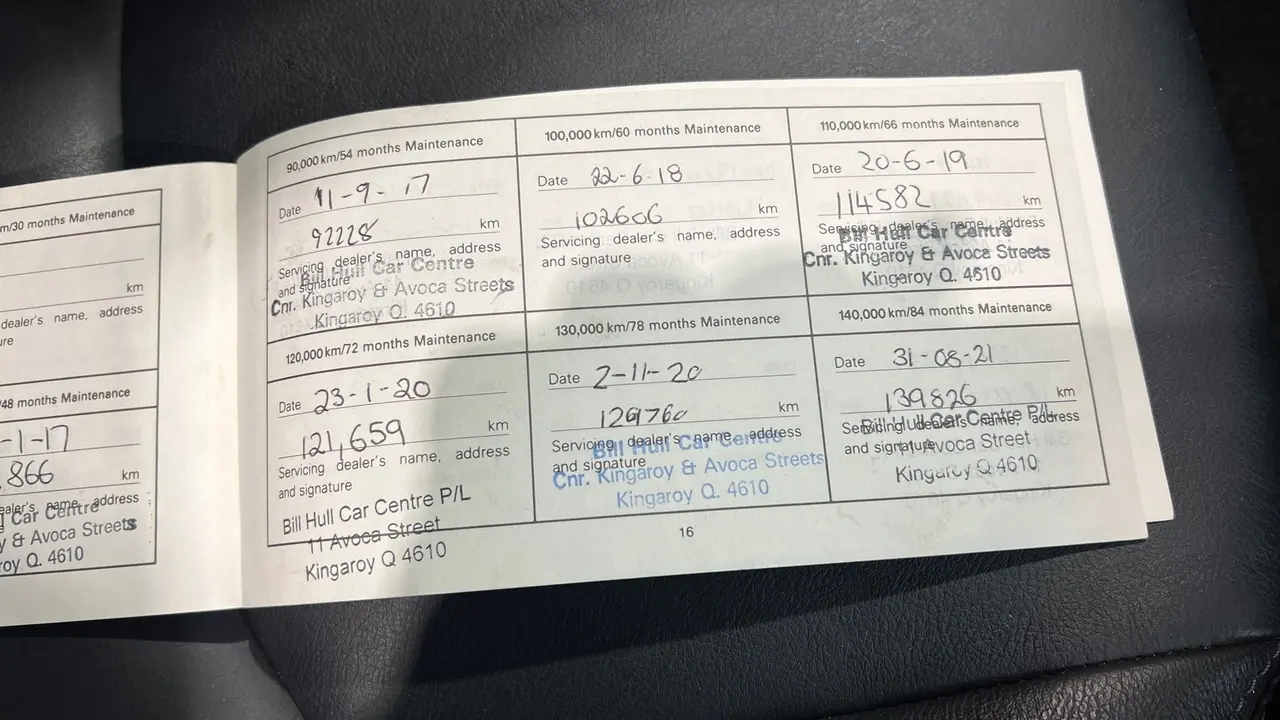 m/30 months Maintenance
km
dealer's name, address
ure
/48 months Maintenance
-1-17
866 km
ealer's name, address
l Car Centre
y & Avoca Streets
roy Q. 4610
90,000 km/54 months Maintenance
Date 11-9-17
92228 km
Servicing dealer's name, address
and signature
Bill Hull Car Centre
Cnr. Kingaroy & Avoca Streets
Kingaroy Q. 4610
100,000 km/60 months Maintenance
Date 22-6-18
102606 km
Servicing dealer's name, address
and signature
110,000 km/66 months Maintenance
Date 20-6-19
114582 km
Servicing dealer's name, address
and signature
Bill Hull Car Centre
Cnr. Kingaroy & Avoca Streets
Kingaroy Q. 4610
120,000 km/72 months Maintenance
Date 23-1-20
121,659 km
Servicing dealer's name, address
and signature
Bill Hull Car Centre P/L
11 Avoca Street
Kingaroy Q 4610
130,000 km/78 months Maintenance
Date 2-11-20
129760 km
Servicing dealer's name, address
and signature
Bill Hull Car Centre
Cnr. Kingaroy & Avoca Streets
Kingaroy Q. 4610
140,000 km/84 months Maintenance
Date 31-08-21
139826 km
Servicing dealer's name, address
and signature
Bill Hull Car Centre P/L
11 Avoca Street
Kingaroy Q 4610
16